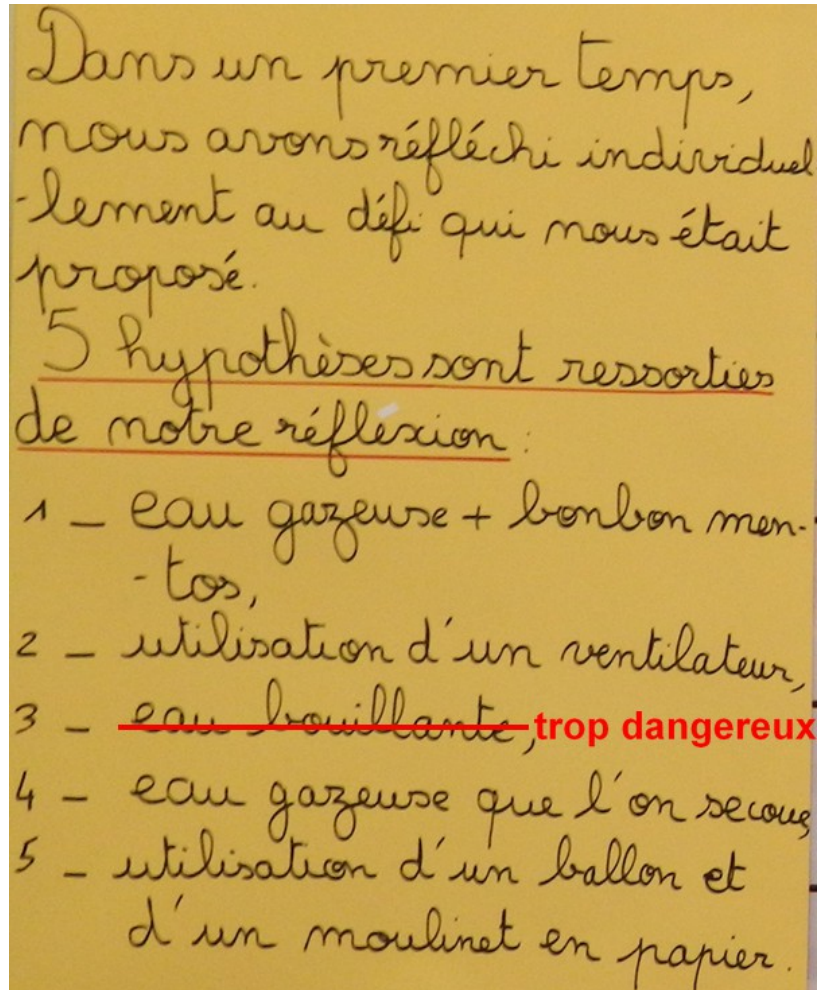 Dans un premier temps,
nous avons réfléchi individuel
-lement au défi qui nous était
proposé.
5 hypothèses sont ressorties
de notre réfléxion :
1 _ eau gazeuse + bonbon men-
- tos,
2 _ utilisation d'un ventilateur,
3 _ eau bouillante, trop dangereux
4 _ eau gazeuse que l'on secoue,
5 _ utilisation d'un ballon et
d'un moulinet en papier.